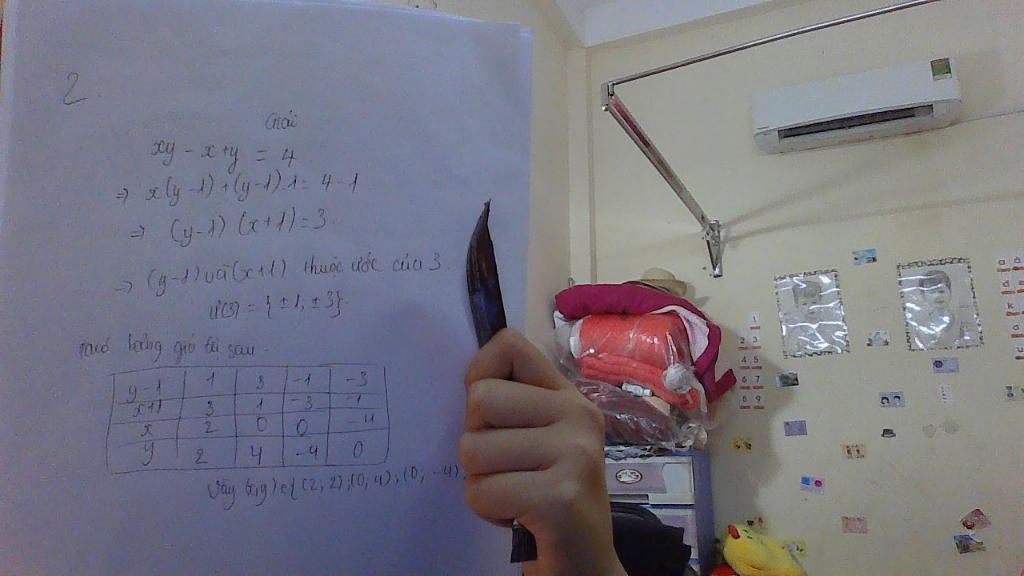 2.
Giải
xy - x + y = 4
=> x(y-1) + (y-1).1 = 4-1
=> (y-1) (x+1) = 3.
=> (y-1) và (x+1) thuộc ước của 3.
Ư(3) = {±1; ±3}.
bảng giá trị sau.
y-1 1 3 -1 -3
x+1 3 1 -3 -1
x 2 0 0 -4
y 2 4 -4 0
Vậy (x,y) ∈ {(2; 2); (0, 4); (0, -4),
1
3
4 5
6 7
8 9